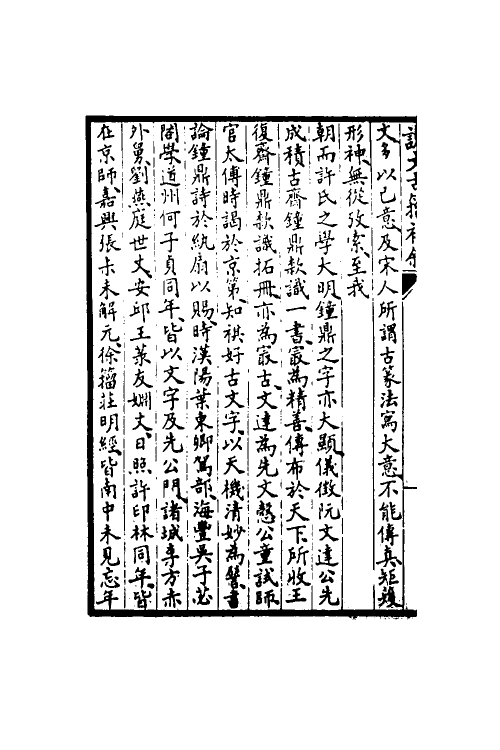 說文古籀補敘
文多以己意及宋人所謂古篆法寫大意不能傳真矩蒦
形神無從攷索至我
朝而許氏之學大明鐘鼎之字亦大顯儀徵阮文達公先
成積古齋鐘鼎款識一書寂為精善傳布於天下所收王
復齋鐘鼎款識拓冊亦為寂古文達為先文愨公童試師
官太傅時謁於京第知祺好古文字以天機清妙為譽書
論鐘鼎詩於紈扇以賜時漢陽葉東卿駕部海豐吳子苾
閣學道州何子貞同年皆以文字及先公門諸城李方赤
外舅劉燕庭世丈安邱王菉友姻丈日照許印林同年皆
在京師嘉興張尗未解元徐籀莊明經皆南中未見忘年